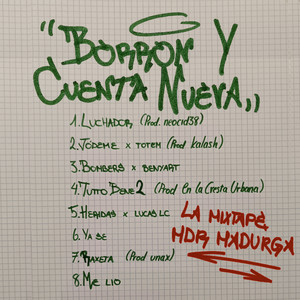 "BORRON Y
CUENTA NUEVA"
1. LUCHADOR (Prod. neocid38)
2. JÓDEME x TOTEM (Prod Kalash)
3. BOMBERS x BENYART
4. TUTTO BENE 2 (Prod En la Cresta Urbana)
5. HERIDAS x LUCAS LC
6. YA SE
7. RAXETA (Prod unax)
8. ME LIO
LA MIXTAPE
MDR MADURGA